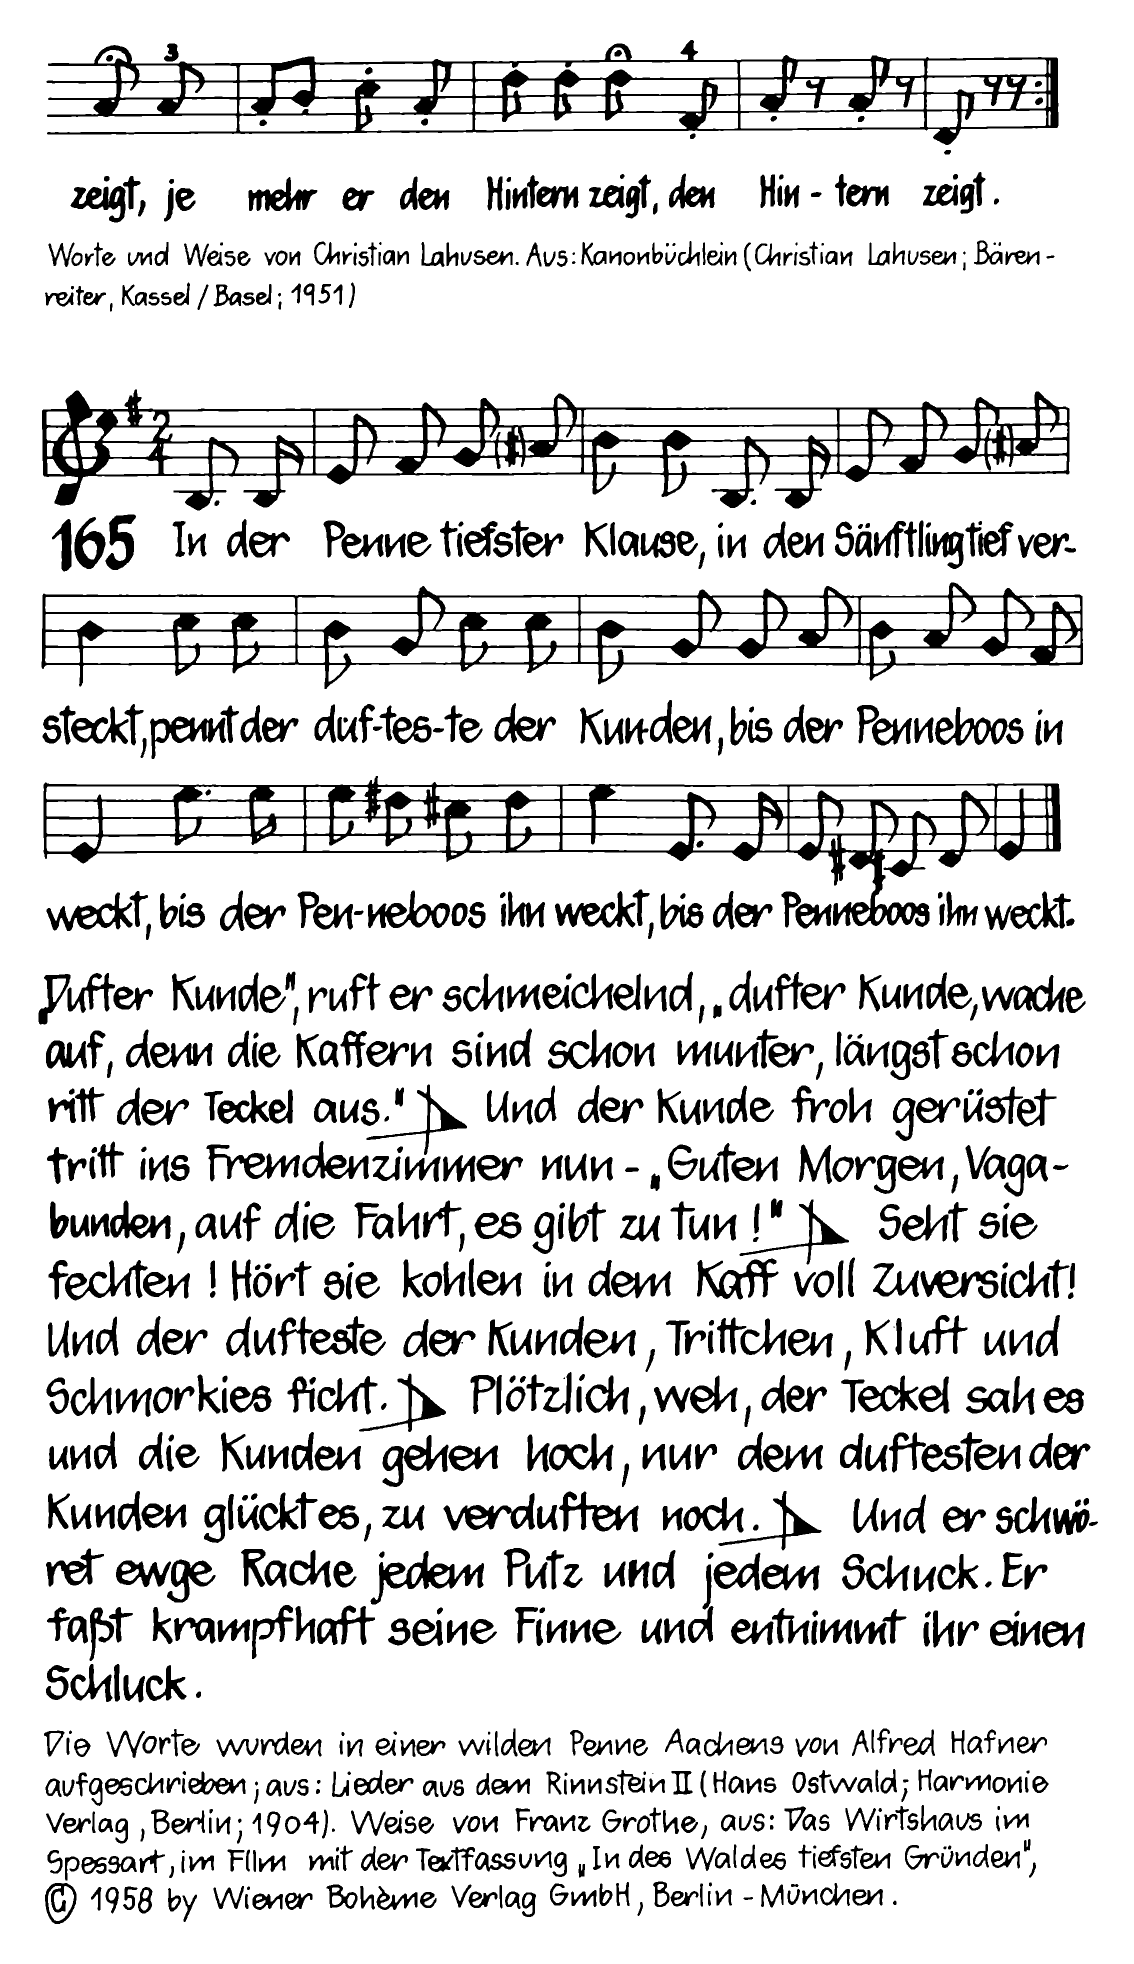 3 4
zeigt, je mehr er den Hintern zeigt, den Hin - tern zeigt.
Worte und Weise von Christian Lahusen. Aus: Kanonbüchlein (Christian Lahusen; Bären-
reiter, Kassel / Basel; 1951)
2
4
165 In der Penne tiefster Klause, in den Sänftling tief ver-
steckt, pennt der duf-tes-te der Kun-den, bis der Penneboos in
weckt, bis der Pen-neboos ihn weckt, bis der Penneboos ihn weckt.
„Dufter Kunde", ruft er schmeichelnd, „dufter Kunde, wache
auf, denn die Kaffern sind schon munter, längst schon
ritt der Teckel aus." Und der Kunde froh gerüstet
tritt ins Fremdenzimmer nun - „Guten Morgen, Vaga-
bunden, auf die Fahrt, es gibt zu tun !" Seht sie
fechten ! Hört sie kohlen in dem Kaff voll Zuversicht!
Und der dufteste der Kunden, Trittchen, Kluft und
Schmorkies ficht. Plötzlich, weh, der Teckel sah es
und die Kunden gehen hoch, nur dem duftesten der
Kunden glückt es, zu verduften noch. Und er schwö-
ret ewge Rache jedem Putz und jedem Schuck. Er
faßt krampfhaft seine Finne und entnimmt ihr einen
Schluck.
Die Worte wurden in einer wilden Penne Aachens von Alfred Hafner
aufgeschrieben; aus: Lieder aus dem Rinnstein II (Hans Ostwald; Harmonie
Verlag, Berlin; 1904). Weise von Franz Grothe, aus: Das Wirtshaus im
Spessart, im Film mit der Textfassung „In des Waldes tiefsten Gründen",
© 1958 by Wiener Bohème Verlag GmbH, Berlin - München.